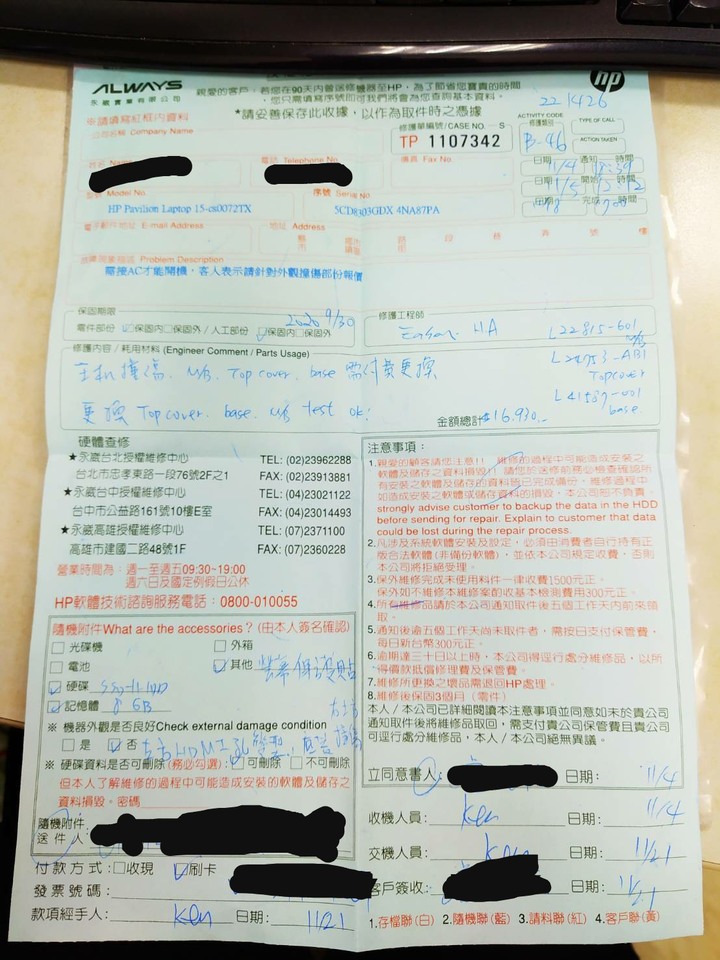 ALWAYS
永崴實業有限公司
親愛的客戶,若您在90天內曾送修機器至HP,為了節省您寶貴的時間
您只需填寫序號即可我們將會為您查詢基本資料。
*請妥善保存此收據,以作為取件時之憑據
hp
221426
※請填寫紅框內資料
公司名稱 Company Name
修護單編號/CASE NO. S
TP 1107342
ACTIVITY CODE
修護類別
B-46
TYPE OF CALL
ACTION TAKEN
姓名 Name
電話 Telephone No.
傳真 Fax No.
日期 11/4 通知 時間
日期 11/5 開始 時間
日期 完成 時間
型號 Model No.
序號 Serial No.
HP Pavilion Laptop 15-cs0072TX
5CD8303GDX 4NA87PA
電子郵件地址 E-mail Address
地址 Address
縣 市 路 街 段 巷 弄 號 樓
故障現象描述 Problem Description
需接AC才能開機,客人表示請針對外觀撞傷部份報價
保固期限
2020 9/30
零件部份 保固內 保固外 / 人工部份 保固內 保固外
修護工程師
L22815-601
M/B
修護內容 / 耗用材料 (Engineer Comment / Parts Usage)
L24753-AB1
Topcover
主機撞傷. M/B. Top cover. base 需付費更換
L41587-001
base
更換 Top cover. base. M/B test ok!
金額總計 $16,930.-
硬體查修
★永崴台北授權維修中心 TEL: (02)23962288
台北市忠孝東路一段76號2F之1 FAX: (02)23913881
★永崴台中授權維修中心 TEL: (04)23021122
台中市公益路161號10樓E室 FAX: (04)23014493
★永崴高雄授權維修中心 TEL: (07)2371100
高雄市建國二路48號1F FAX: (07)2360228
營業時間為:週一至週五09:30~19:00
週六日及國定例假日公休
HP軟體技術諮詢服務電話:0800-010055
注意事項:
1.親愛的顧客請您注意!! 維修的過程中可能造成安裝之
軟體及儲存之資料損毀!! 請您於送修前務必檢查確認所
有安裝之軟體及儲存的資料皆已完成備份,維修過程中
如造成安裝之軟體或儲存資料的損毀,本公司恕不負責。
strongly advise customer to backup the data in the HDD
before sending for repair. Explain to customer that data
could be lost during the repair process.
2.凡涉及系統軟體安裝及設定,必須由消費者自行持有正
版合法軟體(非備份軟體),並依本公司規定收費,否則
本公司將拒絕受理。
3.保外維修完成未使用料件一律收費1500元正。
保外如不維修本維修案酌收基本檢測費用300元正。
4.所有維修品請於本公司通知取件後五個工作天內前來領
取。
5.通知後逾五個工作天尚未取件者,需按日支付保管費,
每日新台幣300元正。
6.逾期達三十日以上時,本公司得逕行處分維修品,以所
得價款抵償修理費及保管費。
7.維修所更換之壞品需退回HP處理。
8.維修後保固3個月(零件)
本人/本公司已詳細閱讀本注意事項並同意如未於貴公司
通知取件後將維修品取回,需支付貴公司保管費且貴公
司可逕行處分維修品,本人/本公司絕無異議。
隨機附件What are the accessories? (由本人簽名確認)
光碟機 外箱
電池 其他 螢幕保護貼
硬碟
記憶體 8 GB
※ 機器外觀是否良好Check external damage condition
是 否 HDMI孔
※ 硬碟資料是否可刪除(務必勾選): 可刪除 不可刪除
但本人了解維修的過程中可能造成安裝的軟體及儲存之
資料損毀。密碼
隨機附件
送 件 人
付款方式: 收現 刷卡
發票號碼:
款項經手人: Ken 日期: 11/21
立同意書人: 日期: 11/4
收機人員: Ken 日期: 11/4
交機人員: Ken 日期: 11/21
客戶簽收: 日期: 11/21
1.存檔聯(白) 2.隨機聯(藍) 3.請料聯(紅) 4.客戶聯(黃)